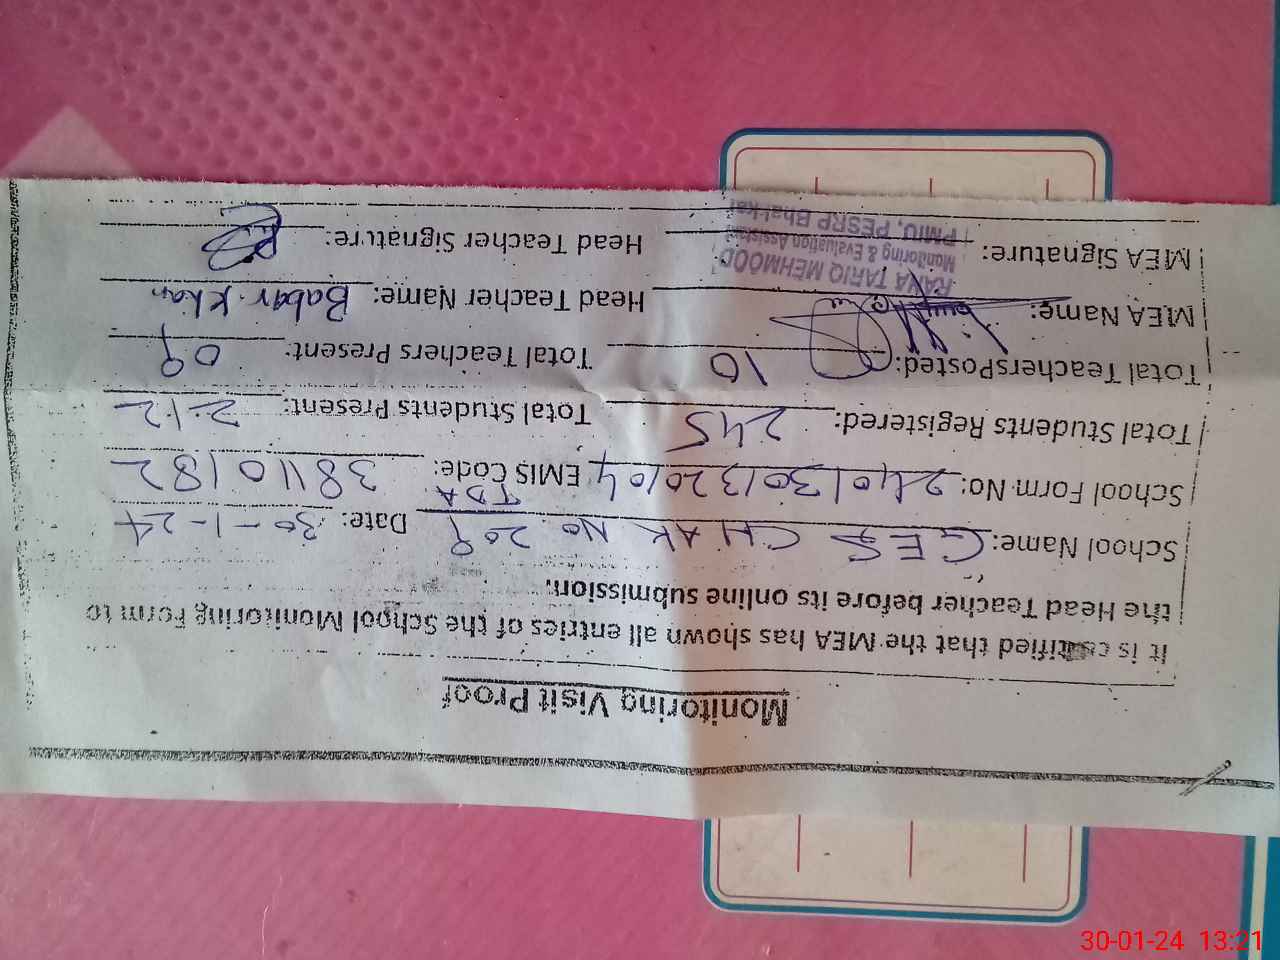 Monitoring Visit Proof
It is certified that the MEA has shown all entries of the School Monitoring Form to
the Head Teacher before its online submission.
School Name: GES CHAK NO. 209 TDA Date: 30-1-24
School Form No: 2401301320104 EMIS Code: 38110182
Total Students Registered: 245 Total Students Present: 212
Total Teachers Posted: 10 Total Teachers Present: 09
MEA Name: Head Teacher Name: Babar Khan
RANA TARIQ MEHMOOD
Monitoring & Evaluation Assistant
PMIU, PESRP Bhakkar
MEA Signature: Head Teacher Signature:
30-01-24 13:21